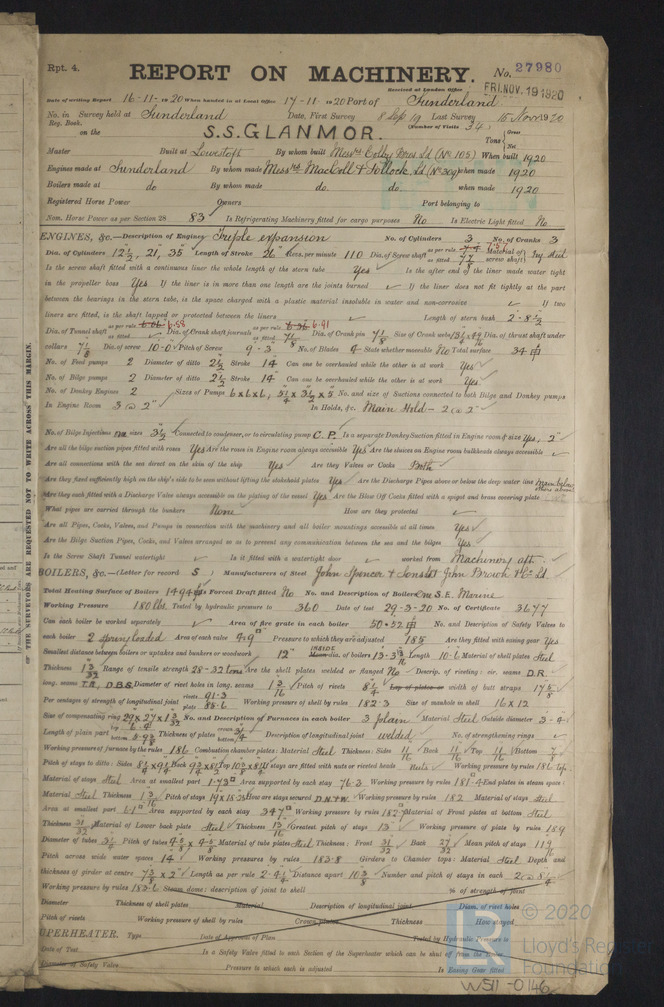 Rpt. 4.
REPORT ON MACHINERY.
No. 27980
Received at London Office FRI. NOV. 19 1920
Date of writing Report 16-11-1920 When handed in at Local Office 17-11-1920 Port of Sunderland
No. in Reg. Book. Survey held at Sunderland Date, First Survey 8 Sep 19 Last Survey 15 Nov 1920
(Number of Visits 34)
on the S.S. GLANMOR. Tons { Gross Net
Master Built at Lowestoft By whom built Messrs Colby Bros. Ld (No 105) When built 1920
Engines made at Sunderland By whom made Messrs MacColl & Pollock, Ld (No 309) when made 1920
Boilers made at do By whom made do. do. when made 1920
Registered Horse Power Owners Port belonging to
Nom. Horse Power as per Section 28 83 Is Refrigerating Machinery fitted for cargo purposes No Is Electric Light fitted No
ENGINES, &c.—Description of Engines Triple expansion No. of Cylinders 3 No. of Cranks 3
Dia. of Cylinders 12½, 21, 35 Length of Stroke 26" Revs. per minute 110 Dia. of Screw shaft as per rule as fitted 7 7/8 Material of screw shaft Ing. Steel
Is the screw shaft fitted with a continuous liner the whole length of the stern tube Yes Is the after end of the liner made water tight
in the propeller boss Yes If the liner is in more than one length are the joints burned If the liner does not fit tightly at the part
between the bearings in the stern tube, is the space charged with a plastic material insoluble in water and non-corrosive If two
liners are fitted, is the shaft lapped or protected between the liners Length of stern bush 2-8½
Dia. of Tunnel shaft as per rule 6.58 as fitted Dia. of Crank shaft journals as per rule 6.91 as fitted 7 1/8 Dia. of Crank pin 7 1/8 Size of Crank webs Dia. of thrust shaft under
collars 7 1/8 Dia. of screw 10-0 Pitch of Screw 9-3 No. of Blades 4 State whether moveable No Total surface 34
No. of Feed pumps 2 Diameter of ditto 2½ Stroke 14 Can one be overhauled while the other is at work Yes
No. of Bilge pumps 2 Diameter of ditto 2½ Stroke 14 Can one be overhauled while the other is at work Yes
No. of Donkey Engines 2 Sizes of Pumps 6x6x6, 5¼ x 3½ x 5 No. and size of Suctions connected to both Bilge and Donkey pumps
In Engine Room 3 @ 2" In Holds, &c. Main Hold - 2 @ 2"
No. of Bilge Injections one sizes 3½ Connected to condenser, or to circulating pump C.P. Is a separate Donkey Suction fitted in Engine room & size Yes, 2"
Are all the bilge suction pipes fitted with roses Yes Are the roses in Engine room always accessible Yes Are the sluices on Engine room bulkheads always accessible
Are all connections with the sea direct on the skin of the ship Yes Are they Valves or Cocks Both
Are they fixed sufficiently high on the ship's side to be seen without lifting the stokehold plates Yes Are the Discharge Pipes above or below the deep water line Main below others above
Are they each fitted with a Discharge Valve always accessible on the plating of the vessel Yes Are the Blow Off Cocks fitted with a spigot and brass covering plate
What pipes are carried through the bunkers None How are they protected
Are all Pipes, Cocks, Valves, and Pumps in connection with the machinery and all boiler mountings accessible at all times Yes
Are the Bilge Suction Pipes, Cocks, and Valves arranged so as to prevent any communication between the sea and the bilges Yes
Is the Screw Shaft Tunnel watertight Is it fitted with a watertight door worked from Machinery aft
BOILERS, &c.—(Letter for record S) Manufacturers of Steel John Spencer & Sons Ld John Brown & Co Ld
Total Heating Surface of Boilers 1494 Is Forced Draft fitted No No. and Description of Boilers One S.E. Marine
Working Pressure 180 lbs. Tested by hydraulic pressure to 360 Date of test 29-3-20 No. of Certificate 3677
Can each boiler be worked separately Area of fire grate in each boiler 50.32 No. and Description of Safety Valves to
each boiler 2 spring loaded Area of each valve 4.9 Pressure to which they are adjusted 185 Are they fitted with easing gear Yes
Smallest distance between boilers or uptakes and bunkers or woodwork 12" INSIDE dia. of boilers Length 10-6 Material of shell plates Steel
Thickness 1 3/32 Range of tensile strength 28-32 tons Are the shell plates welded or flanged No Descrip. of riveting: cir. seams D.R.
long. seams T.R., D.B.S. Diameter of rivet holes in long. seams 1 3/16 Pitch of rivets 8¼ Lap of plates or width of butt straps 17 5/8
Per centages of strength of longitudinal joint rivets 91.3 plate 85.6 Working pressure of shell by rules 182.3 Size of manhole in shell 16 x 12
Size of compensating ring 29 x 27 x 1 3/32 No. and Description of Furnaces in each boiler 3 plain Material Steel Outside diameter 3-4
Length of plain part top bottom Thickness of plates crown bottom Description of longitudinal joint welded No. of strengthening rings
Working pressure of furnace by the rules 186 Combustion chamber plates: Material Steel Thickness: Sides 11/16 Back 11/16 Top 11/16 Bottom
Pitch of stays to ditto: Sides Back Top If stays are fitted with nuts or riveted heads Nuts Working pressure by rules
Material of stays Steel Area at smallest part 1.73 Area supported by each stay 76.3 Working pressure by rules 181.4 End plates in steam space:
Material Steel Thickness 1 3/16 Pitch of stays 19 x 18 How are stays secured D.N.T.W. Working pressure by rules 182 Material of stays Steel
Area at smallest part Area supported by each stay 347 Working pressure by rules 182.9 Material of Front plates at bottom Steel
Thickness 31/32 Material of Lower back plate Steel Thickness Greatest pitch of stays 13 Working pressure of plate by rules 189
Diameter of tubes 3¼ Pitch of tubes 4 5/8 x 4 5/8 Material of tube plates Steel Thickness: Front 31/32 Back 27/32 Mean pitch of stays
Pitch across wide water spaces 14 Working pressures by rules 183.8 Girders to Chamber tops: Material Steel Depth and
thickness of girder at centre 7 3/8 x 2" Length as per rule 2-4¼ Distance apart 10 3/8 Number and pitch of stays in each 2 @ 8¼
Working pressure by rules 183.6 Steam dome: description of joint to shell % of strength of joint
Diameter Thickness of shell plates Material Description of longitudinal joint Diam. of rivet holes
Pitch of rivets Working pressure of shell by rules Crown plates Thickness How stayed
UPERHEATER. Type Date of Approval of Plan Tested by Hydraulic Pressure to
Date of Test Is a Safety Valve fitted to each Section of the Superheater which can be shut off from the Boiler
Diameter of Safety Valve Pressure to which each is adjusted Is Easing Gear fitted
OF THE SURVEYORS ARE REQUESTED NOT TO WRITE ACROSS THIS MARGIN.
© 2020
Lloyd's Register
Foundation
W511-0146